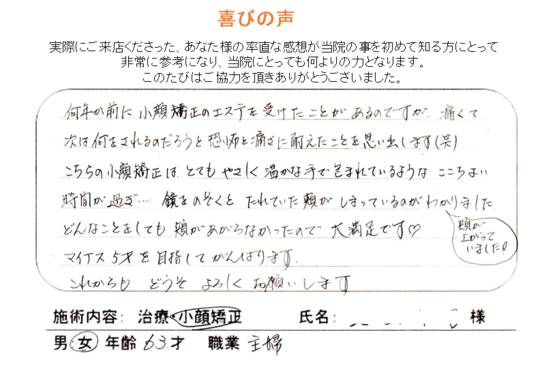 喜びの声
実際にご来店くださった、あなた様の率直な感想が当院の事を初めて知る方にとって
非常に参考になり、当院にとっても何よりの力となります。
このたびはご協力を頂きありがとうございました。
何年か前に小顔矯正のエステを受けたことがあるのですが、痛くて
次は何をされるのだろうと恐怖と痛さに耐えたことを思い出します(笑)
こちらの小顔矯正は、とてもやさしく温かな手で包まれているような ここちよい
時間が過ぎ… 鏡をのぞくと たれていた頬が しまっているのがわかりました
どんなことをしても 頬があがらなかったので 大満足です♡
頬が
上がって
いました!
マイナス5才を目指してがんばります。
これからも どうぞ よろしく お願いします
施術内容: 治療・小顔矯正 氏名: 様
男・女 年齢 63才 職業 主婦